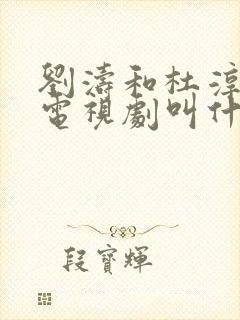 劉濤和杜淳
電視劇叫什
段寶輝